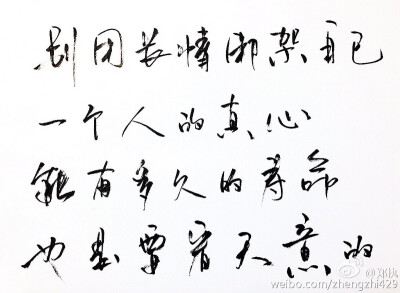 别因长情绑架自己
一个人的真心
能有多久的寿命
也是要看天意的
@郑执
weibo.com/zhengzhi429